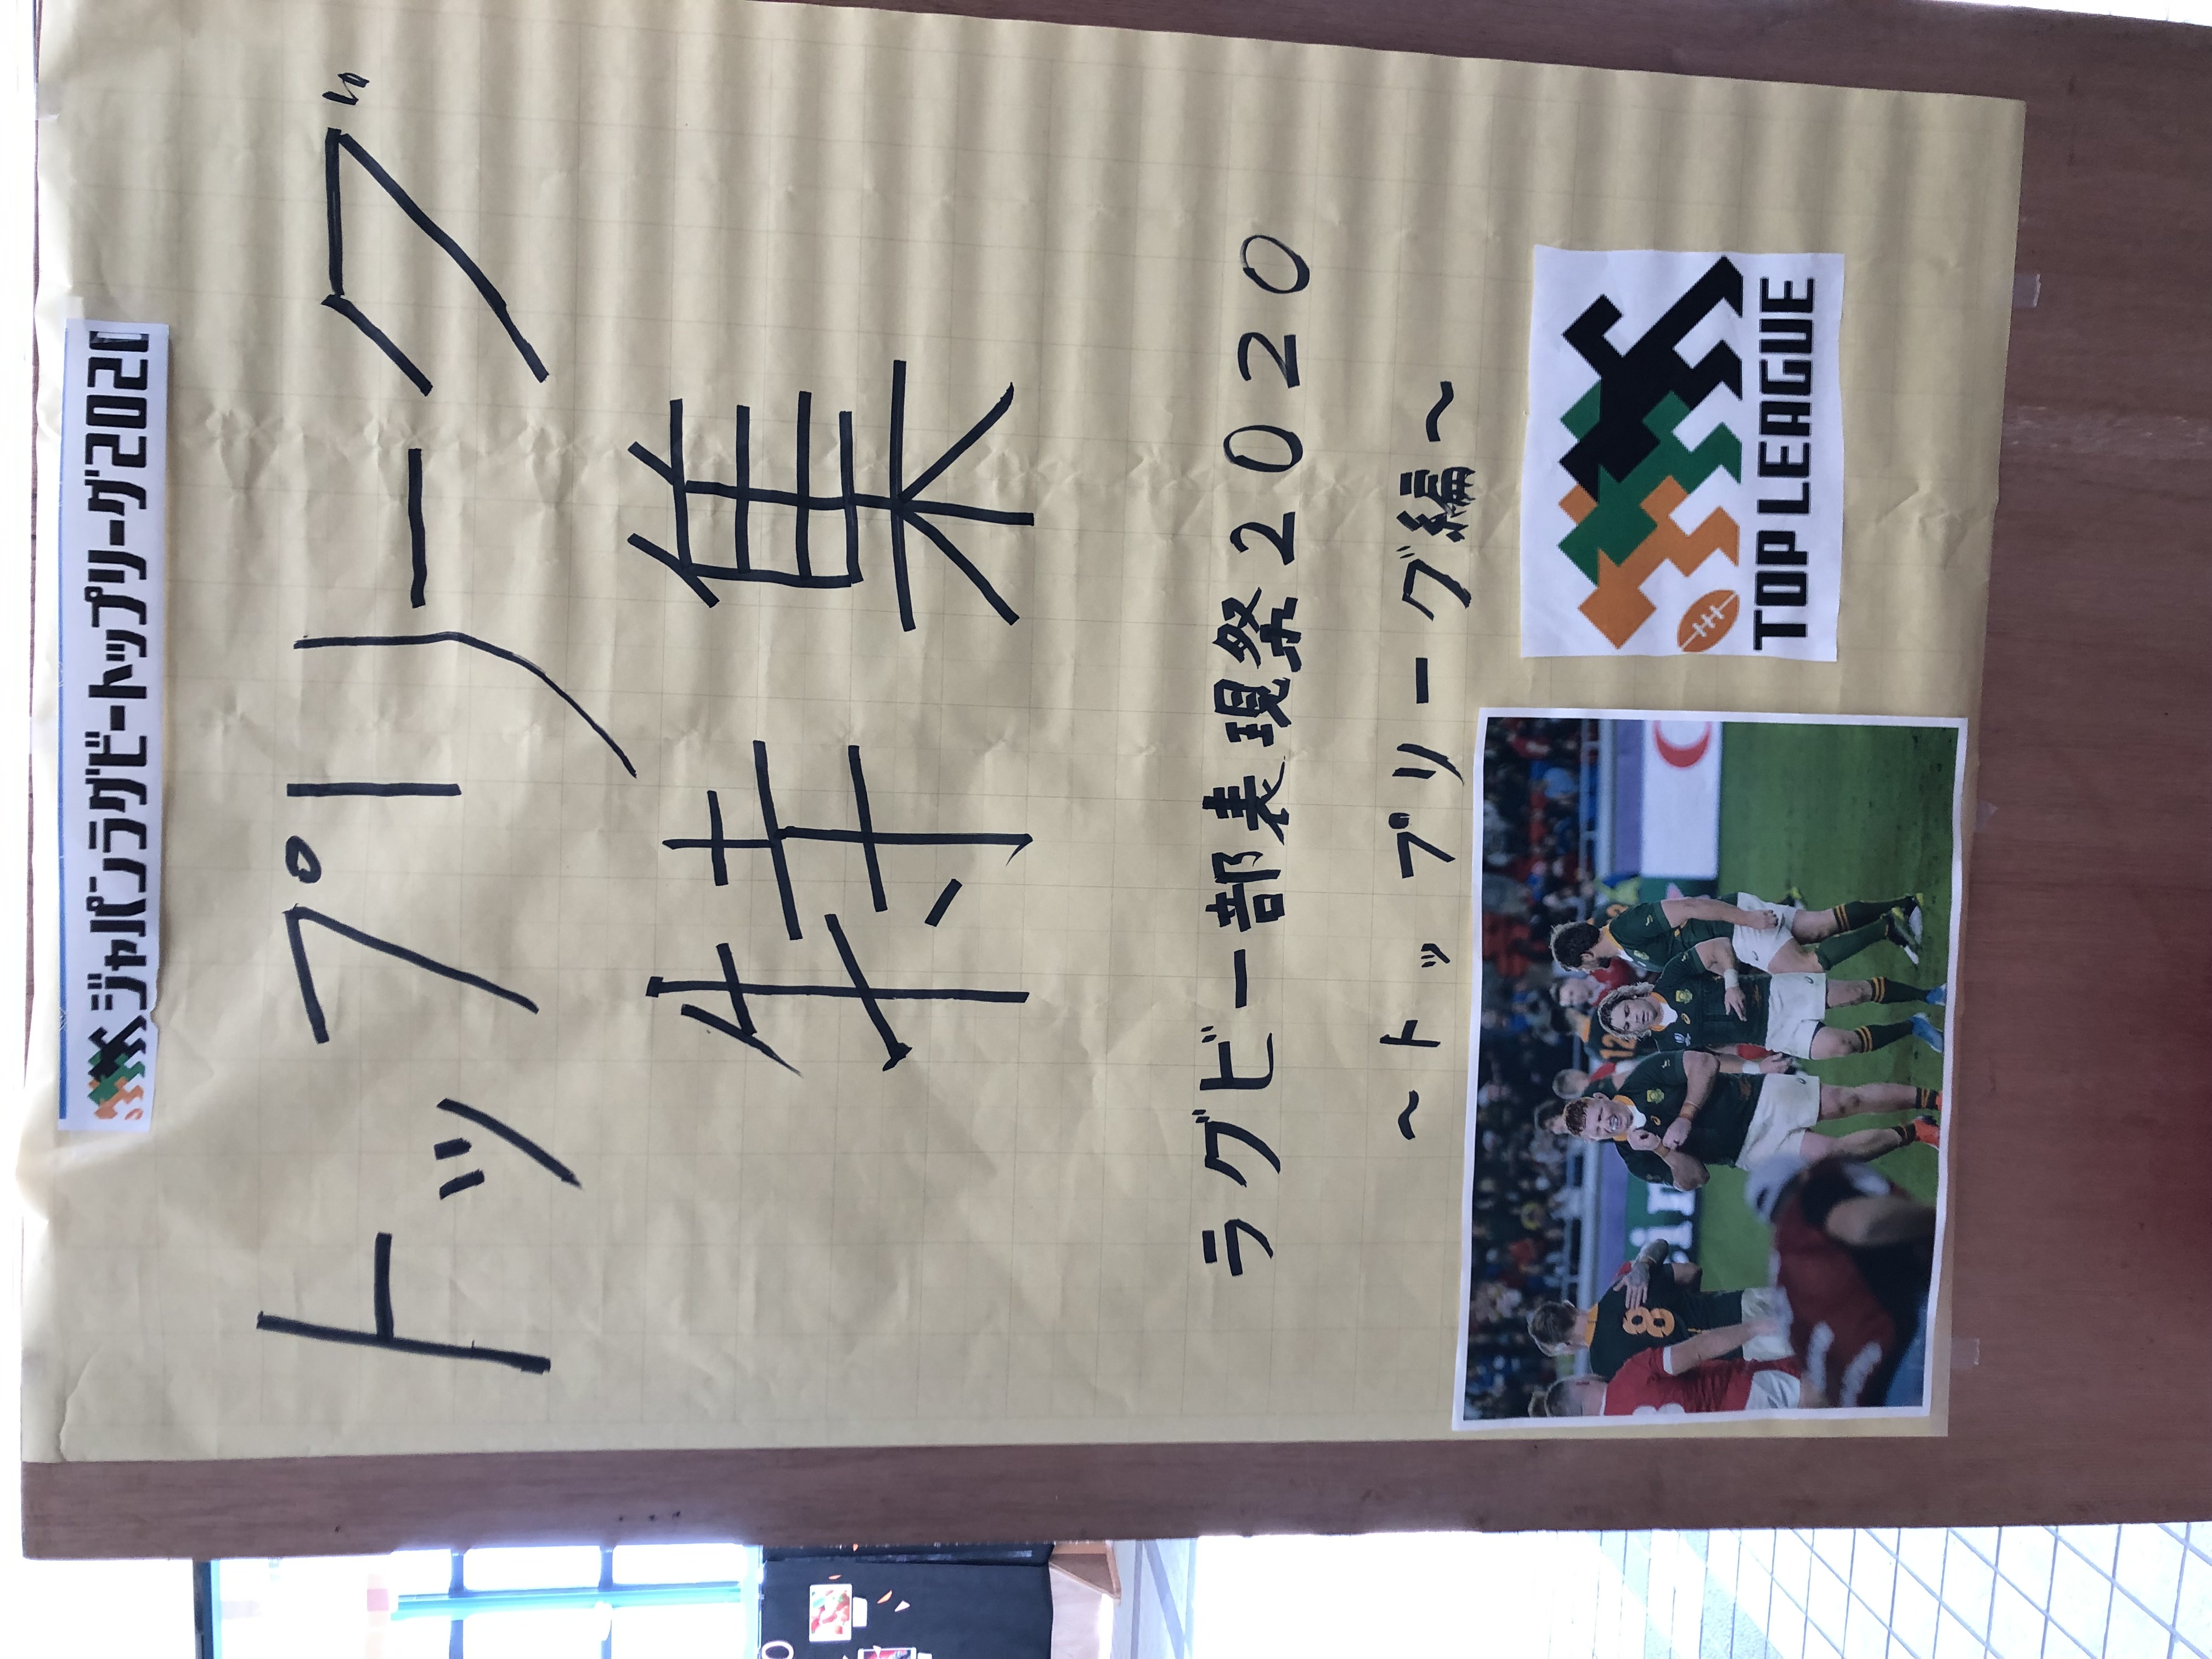 ジャパンラグビートップリーグ2020
トップリーグ
特集
ラグビー部表現祭2020
～トップリーグ編～
8
12
TOP LEAGUE